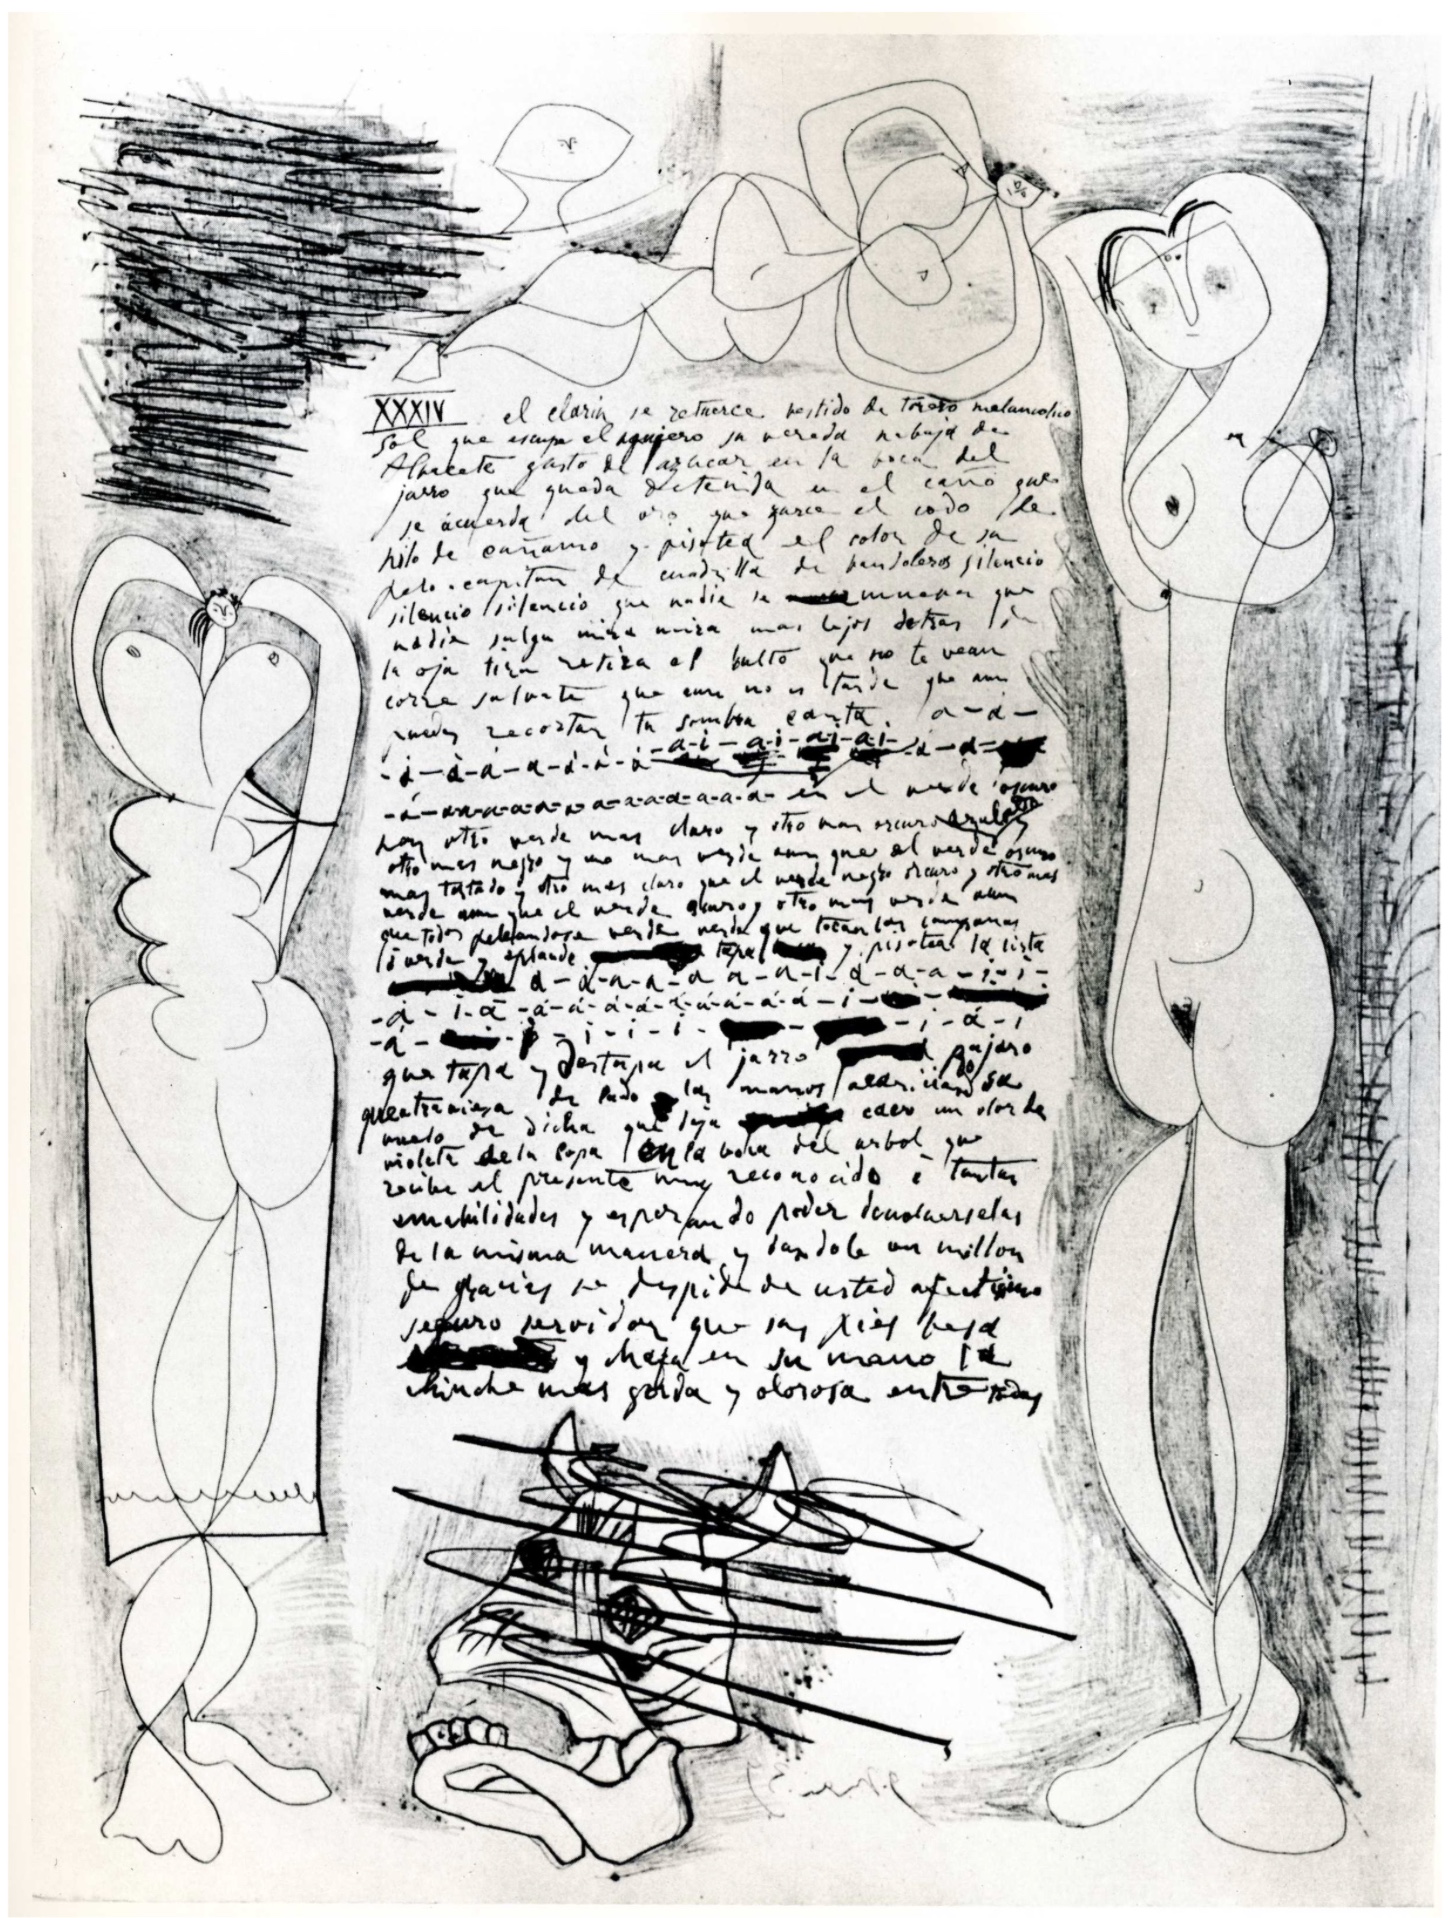 XXXIV el clarin se retuerce vestido de torero melancolico
sol que escupe el agujero su verada nabaja de
Albacete gusto del azucar en la boca del
jarro que queda detenida en el caño que
se acuerda del oro que zurce el codo de
hilo de cañamo y pisotea el color de su
pelo capitan de cuadrilla de bandoleros silencio
silencio silencio que nadie se mueva que
nadie salga mira mira mas lejos detras de
la oja tira retira el bulto que no te vean
corre salvate que aun no es tarde que aun
puedes recortar tu sombra canta. a-a-
-a-a-a-a-a-a-a-a-i-ai-ai-ai-a-a-
-a-a-a-a-a-a-a-a-a-a-a-a-a- en el verde oscuro
hay otro verde mas claro y otro mas oscuro
otro mas negro y uno mas verde aun que el verde oscuro
mas tostado y otro mas claro que el verde negro oscuro y otro mas
verde aun que el verde oscuro y otro mas verde aun
que todos peleandose verde verde que tocan las campanas
verde y aplaude tapa y pisotea la lista
a-a-a-a-a a-a-i-a-a-a-i-i-
-a-i-a-a-a-a-a-a-a-a-a-a-i-
-a- -i-i-i- - -i-a-i
que tapa y destapa el jarro pajaro
que atraviesa de lado las manos acariciando su
vuelo de dicha que deja caer un olor de
violeta de la copa en la boca del arbol que
recibe el presente muy reconocido a tantas
amabilidades y esperando poder devolverselas
de la misma manera y dandole un millon
de gracias se despide de usted afectisimo
seguro servidor que sus pies besa
y deja en su mano la
chinche mas gorda y olorosa entre todas